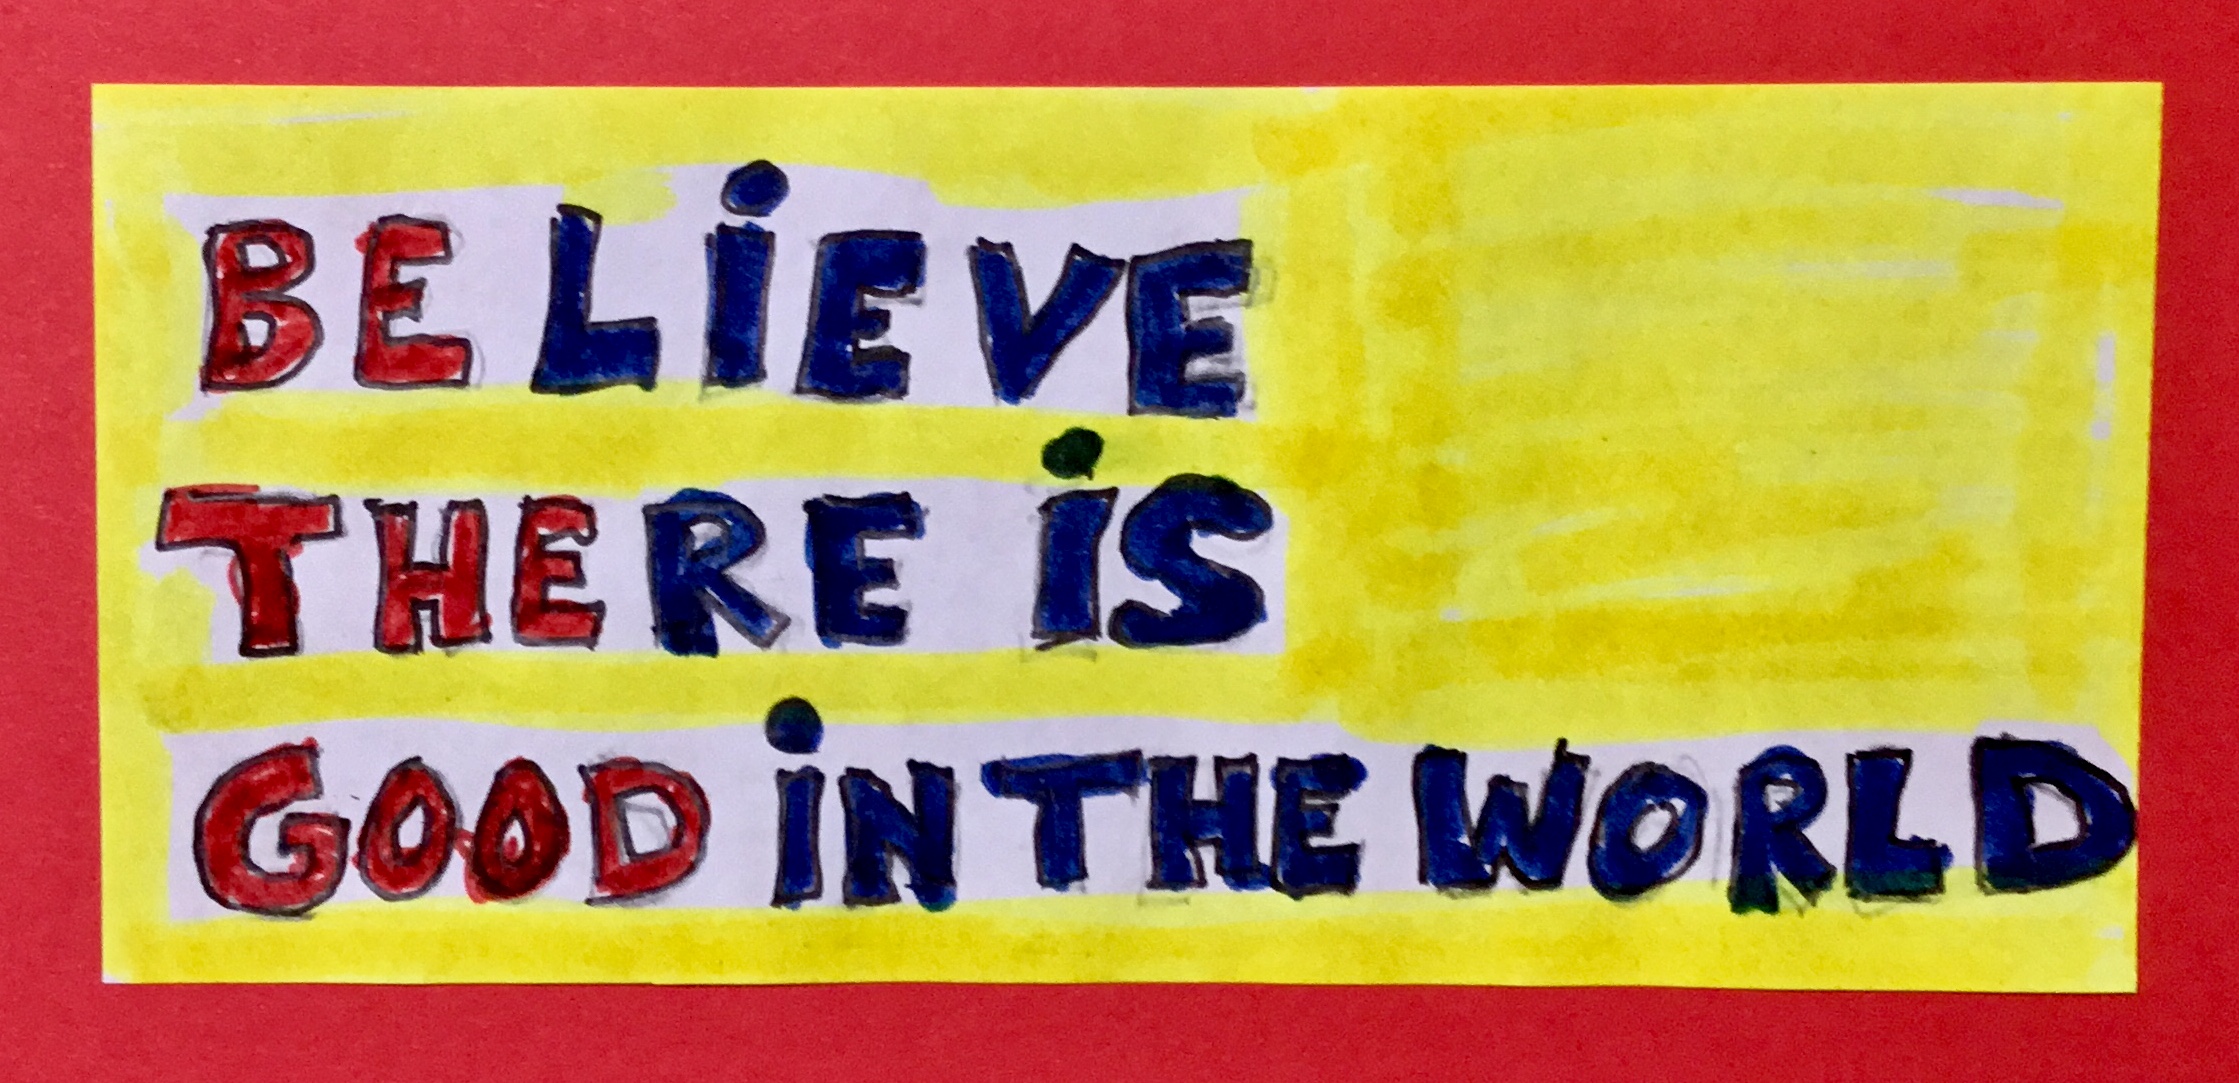 BELiEVE
THERE iS
GOOD iN THE WORLD